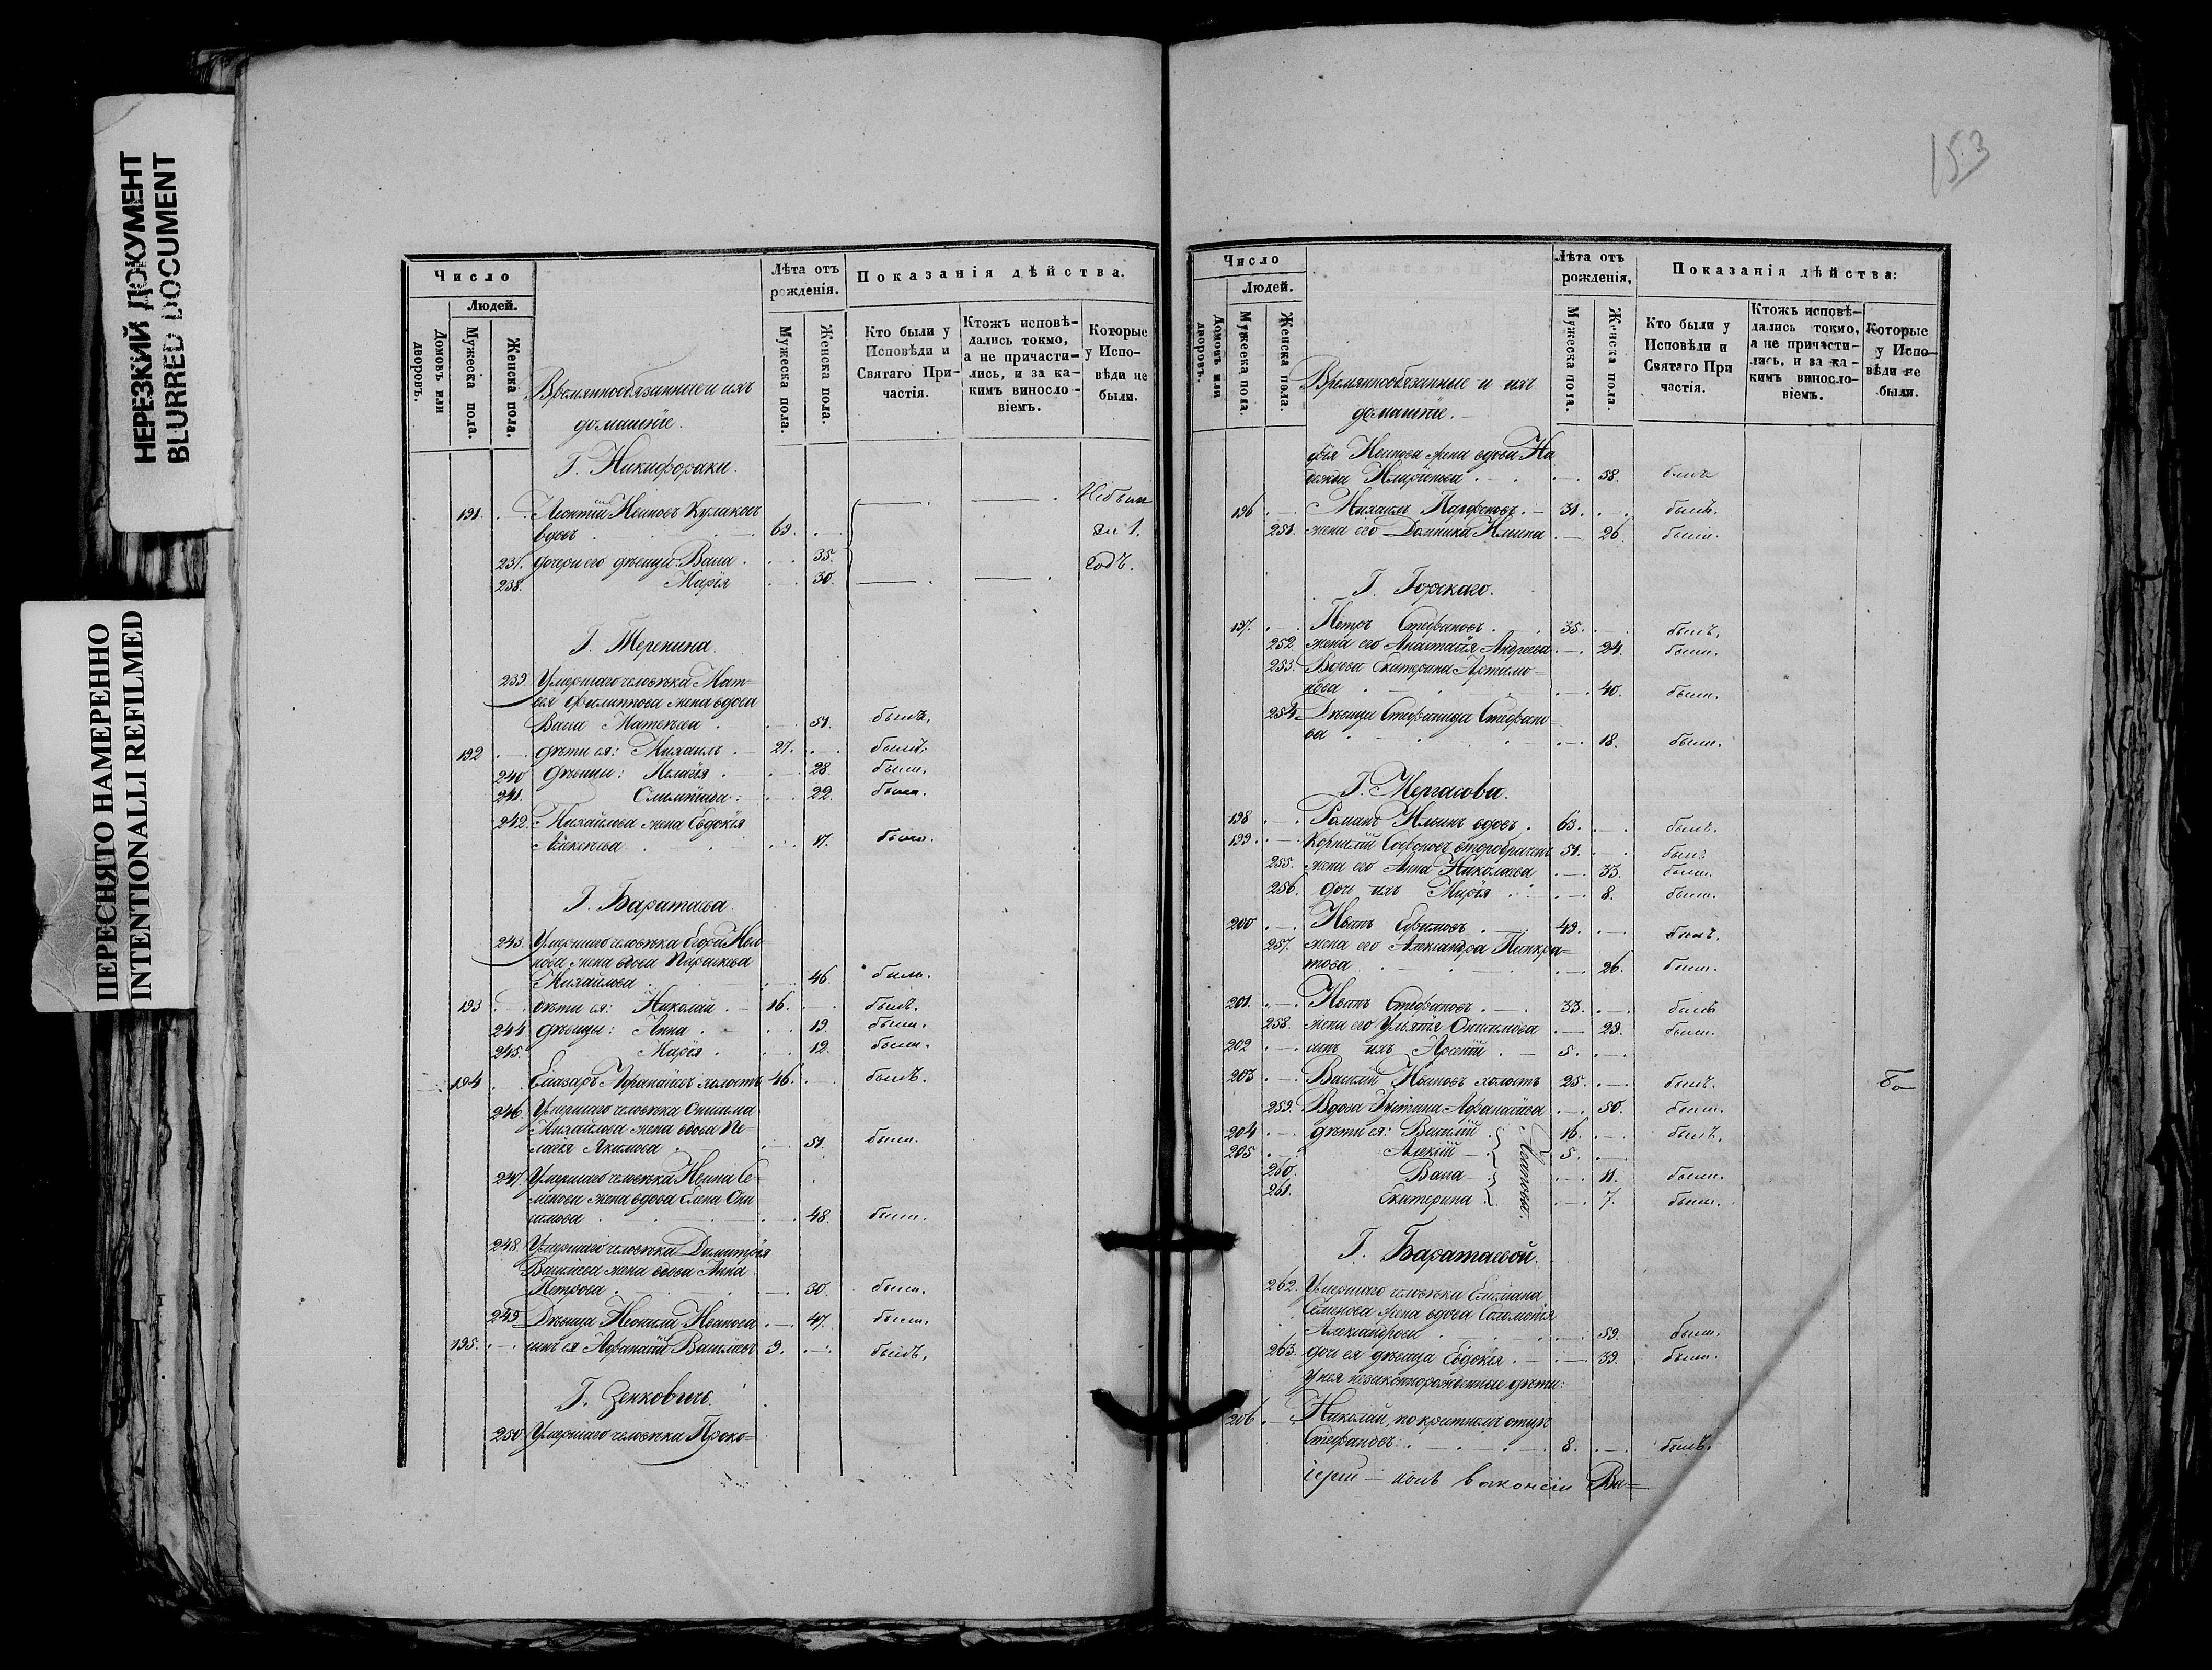 НЕРЕЗКИЙ ДОКУМЕНТ
BLURRED DOCUMENT
ПЕРЕСНЯТО НАМЕРЕННО
INTENTIONALLI REFILMED
Число
Людей.
Домовъ или дворовъ.
Мужеска пола.
Женска пола.
Лѣта отъ рожденія.
Мужеска пола.
Женска пола.
Показанія дѣйства.
Кто были у Исповѣди и Святаго Причастія.
Ктожъ исповѣдались токмо, а не причастились, и за какимъ винословіемъ.
Которые у Исповѣди не были.
Времяннообязанные и ихъ
домашніе.
Г. Никифораки.
191. Леонтій Ивановъ Куликовъ
вдовъ 69.
Небыли
237. дочери его дѣвицы: Васса 35.
238. Марія 30.
годъ.
Г. Теренина.
239 Умершаго человѣка Мат-
вея Филиппова жена вдова
Васса Матвѣева 51. была.
192 дѣти ея: Михаилъ 27. былъ.
240 дѣвицы: Пелагія 28. была.
241. Олимпіада: 22. была.
242. Михайлова жена Евдокія
была.
Г. Баратаева.
243. Умершаго человѣка Егора Ива-
нова жена вдова Параскева
Михайлова 46. была.
193 дѣти ея: Николай 16. былъ.
244 дѣвицы: Анна 19. была.
245. Марія 12. была.
194 Елизаръ Афанасіевъ холостъ 46. былъ.
246. Умершаго человѣка Онисима
Михайлова жена вдова Пе-
лагія Акимова 51. была.
247. Умершаго человѣка Ивана Се-
менова жена вдова Елена Они-
симова 48. была.
248. Умершаго человѣка Димитрія
Васильева жена вдова Анна
Петрова 30. была.
249 Дѣвица Неонила Иванова 47. была.
195. сынъ ея Афанасій Васильевъ 9. былъ.
Г. Зенковичъ.
250 Умершаго человѣка Проко-
153
Число
Людей.
Домовъ или дворовъ.
Мужеска пола.
Женска пола.
Лѣта отъ рожденія,
Мужеска пола.
Женска пола.
Показанія дѣйства:
Кто были у Исповѣди и Святаго Причастія.
Ктожъ исповѣдались токмо, а не причастились, и за какимъ винословіемъ.
Которые у Исповѣди не были.
Времяннообязанные и ихъ
домашніе.
фія Иванова жена вдова На
дежда Иларіонова 58. была
196 Михаилъ Парфеновъ 31. былъ.
251. жена его Домника Ильина 26 была.
Г. Горскаго.
197. Петръ Стефановъ 35. былъ.
252 жена его Анастасія Андреева 24. была.
253. Вдова Екатерина Артамо-
нова 40. была.
254. Дѣвица Стефанида Стефано-
ва 18. была.
Г. Мергасова.
198 Романъ Ильинъ вдовъ 63. былъ.
199. Корнилій Софоновъ второбрачен 51. былъ
255. жена его Анна Николаева 33. была.
256. дочь ихъ Марія 8. была.
200 Иванъ Ефимовъ 49. былъ.
257. жена его Александра Панкра-
това 26. была.
201. Иванъ Стефановъ 33. былъ
258. жена его Ульянія Онисимова 29. была.
202 сынъ ихъ Арсеній 5.
203 Василій Ивановъ холостъ 25. былъ.
259. Вдова Іустина Афанасіева 50. была.
204 дѣти ея: Василій 16. былъ.
205 Алексій 5.
260. Васса 11. была.
261. Екатерина 7. была.
Г. Баратаевой.
262. Умершаго человѣка
Семенова жена вдова Соломонія
Александрова 59. была.
263. дочь ея дѣвица Евдокія 39. была.
У нея незаконнорожденные дѣти:
206 Николай, по крестномъ отцѣ
Стефановъ 8. былъ.
іерей